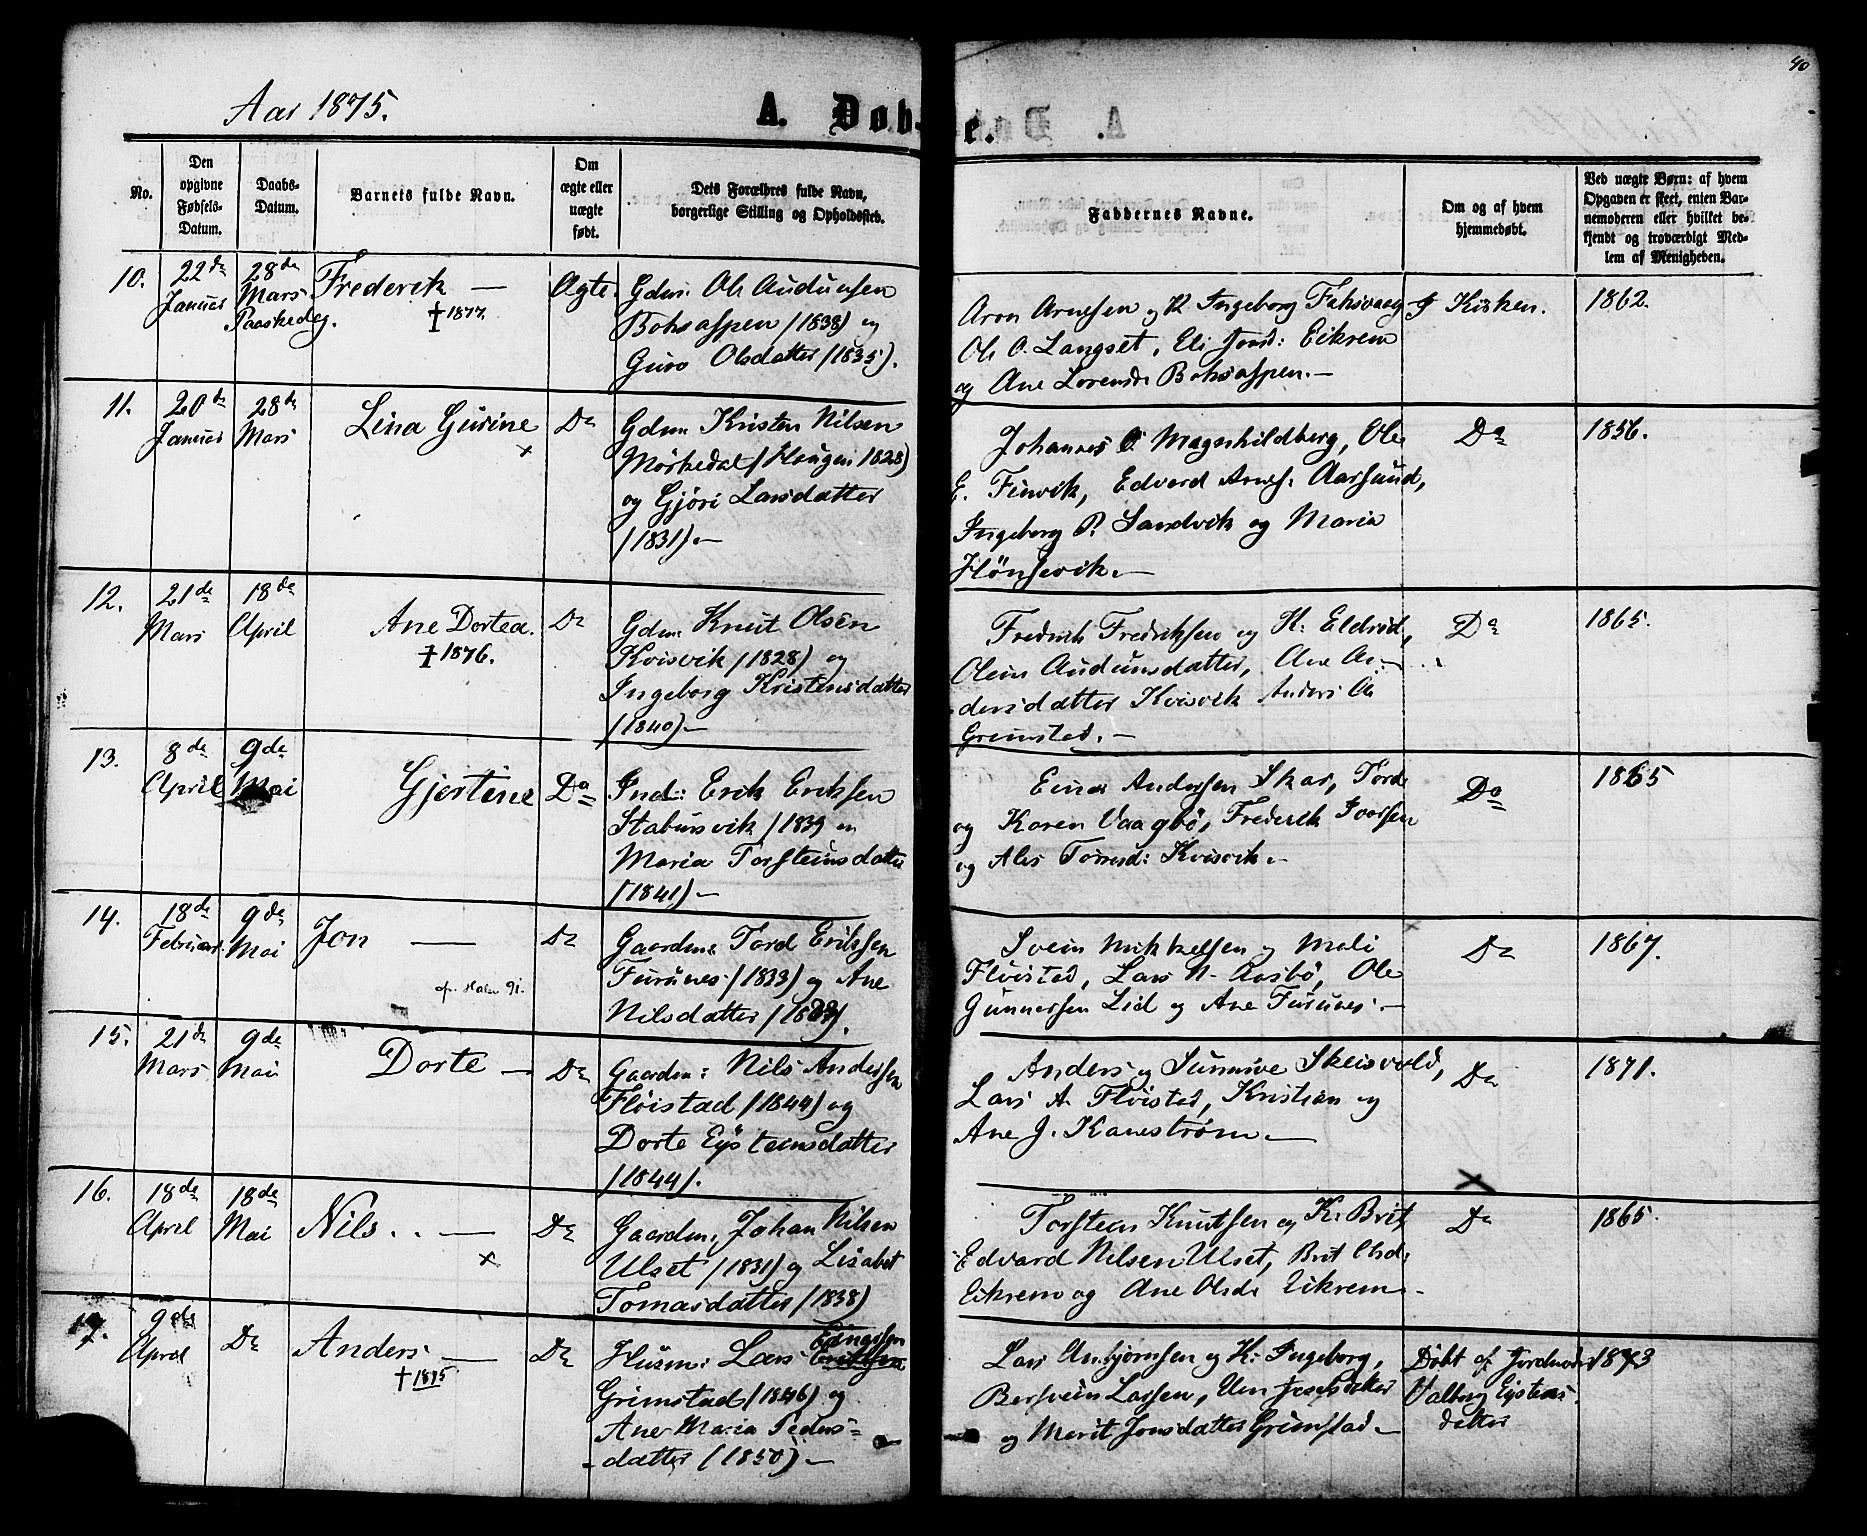 40
Aar 1875.
A. Døb-
e.
No.
Den
opgivne
Fødsels-
Datum.
Daabs-
Datum.
Barnets fulde Navn.
Om
ægte eller
uægte
født.
Dets Forældres fulde Navn,
borgerlige Stilling og Opholdssted.
Faddernes Navne.
Om og af hvem
hjemmedøbt.
Ved uægte Børn: af hvem
Opgaven er skeet, enten Bar-
nemoderen eller hvilket be-
kjendt og troværdigt Med-
lem af Menigheden.
10.
22de
Januar
28de
Mars
Paaskedag.
Frederik —
† 1877.
Ægte.
Gdm: Ole Audunsen
Bohsaspen (1838) og
Guro Olsdatter (1835).
Aron Arnesen og K. Ingeborg Fahsvaag
Ole O. Langset, Eli Jonsd: Eikrem
og Ane Lorensdr Bohsaspen. —
I Kirken.
1862.
11.
20de
Januar
28de
Mars
Lina Gurine
x
Do
Gdm: Kristen Nilsen
Mørkedal (Haugen 1828)
og Gjøri Larsdatter
(1831). —
Johannes O. Magnhildberg, Ole
E. Finvik, Edvard Arnes. Aarsund,
Ingeborg P. Sandvik og Maria
Hønsevik. —
Do
1856.
12.
21de
Mars
18de
April
Ane Dortea.
† 1876.
Do
Gdm: Knut Olsen
Kvisvik (1828) og
Ingeborg Kristensdatter
(1840) —
Fredrik Fredriksen og K: Eldrid,
Olein Audunsdatter, Ane An-
dersdatter Kvisvik Anders Ol
Grimstad. —
Do
1865.
13.
8de
April
9de
Mai
Gjertine
Do
Ind: Erik Eriksen
Stabursvik (1839 og
Maria Torsteinsdatter
(1841) —
Einar Andersen Skar, Tord
og Karen Vaagbø, Frederik Ivarsen
og Ales Tøresd: Kvisvik. —
Do
1865
14.
18de
Februar.
9de
Mai
Jon —
Do
Gaardm: Tord Eriksen
Furunes (1833) og Ane
Nilsdatter (1833).
Svein Mikkelsen og Mali
Fløistad, Lars N. Aasbø, Ole
Gunnersen Lid og Ane Furunes. —
Do
1867.
15.
21de
Mars
9de
Mai
Dorte —
Do
Gaardm: Nils Andersen
Fløistad (1844) og
Dorte Eysteinsdatter
(1844).
Anders og Sunnive Skeisvold,
Lars A. Fløistad, Kristian og
Ane J. Kanestrøm. —
Do
1871.
x
16.
18de
April
18de
Mai
Nils. . —
x
Do
Gaardm: Johan Nilsen
Ulset (1831) og Lisabet
Tomasdatter (1838)
Torstein Knutsen og K. Brit
Edvard Nilsen Ulset, Brit Olsd:
Eikrem og Ane Olsdr Eikrem —
Do
1865.
17.
9de
April
Do
Anders —
† 1895
Do
Husm: Lars
Grimstad (1846) og
Ane Maria Peders-
datter (1850) —
Lars Anbjørnsen og K: Ingeborg,
Bersvein Larsen,
og Merit Jonsdatter Grimstad —
Døbt af Jordmoder
Valborg Eysteins-
datter
1873